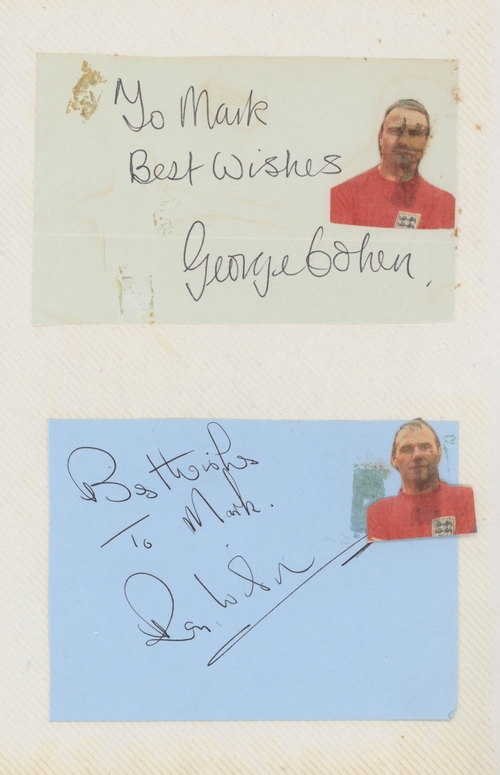 To Mark
Best Wishes
George Cohen.
Best Wishes
To Mark.
Ray Wilson